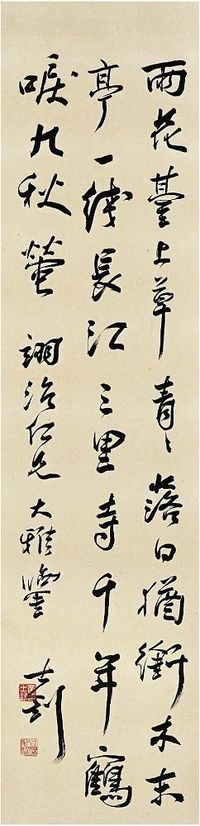 雨花臺上草青々落日猶銜木末
亭一綫長江三里寺千年鶴
唳九秋螢 翊治仁兄大雅鑒 士釗